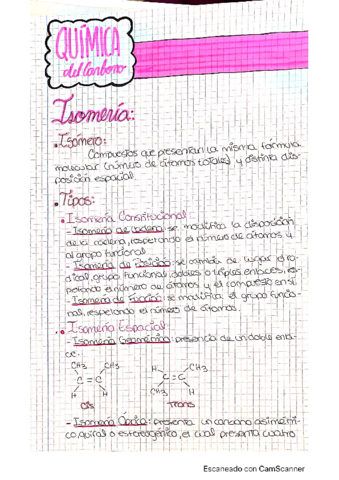 QUÍMICA
del Carbono
Isomería:
• Isómero:
Compuestos que presentan la misma fórmula
molecular (número de átomos totales) y distinta dis-
posición espacial.
• Tipos:
• Isomería Constitucional
- Isomería de Cadena: se modifica la disposición
de la cadena, respetando el número de átomos y
al grupo funcional
- Isomería de Posición: se cambia de lugar el ra-
dical, grupo funcional, dobles o triples enlaces, res-
petando el número de átomos y el compuesto en sí.
- Isomería de Función: se modifica el grupo funcio-
nal, respetando el número de átomos.
• Isomería Espacial
- Isomería Geométrica: presencia de un doble enla-
ce.
CH3 CH3 H CH3
C = C C = C
H H CH3 H
Cis Trans
- Isomería Óptica: presenta un carbono asimétri-
co, quiral o estereogénico, el cual presenta cuatro
Escaneado con CamScanner